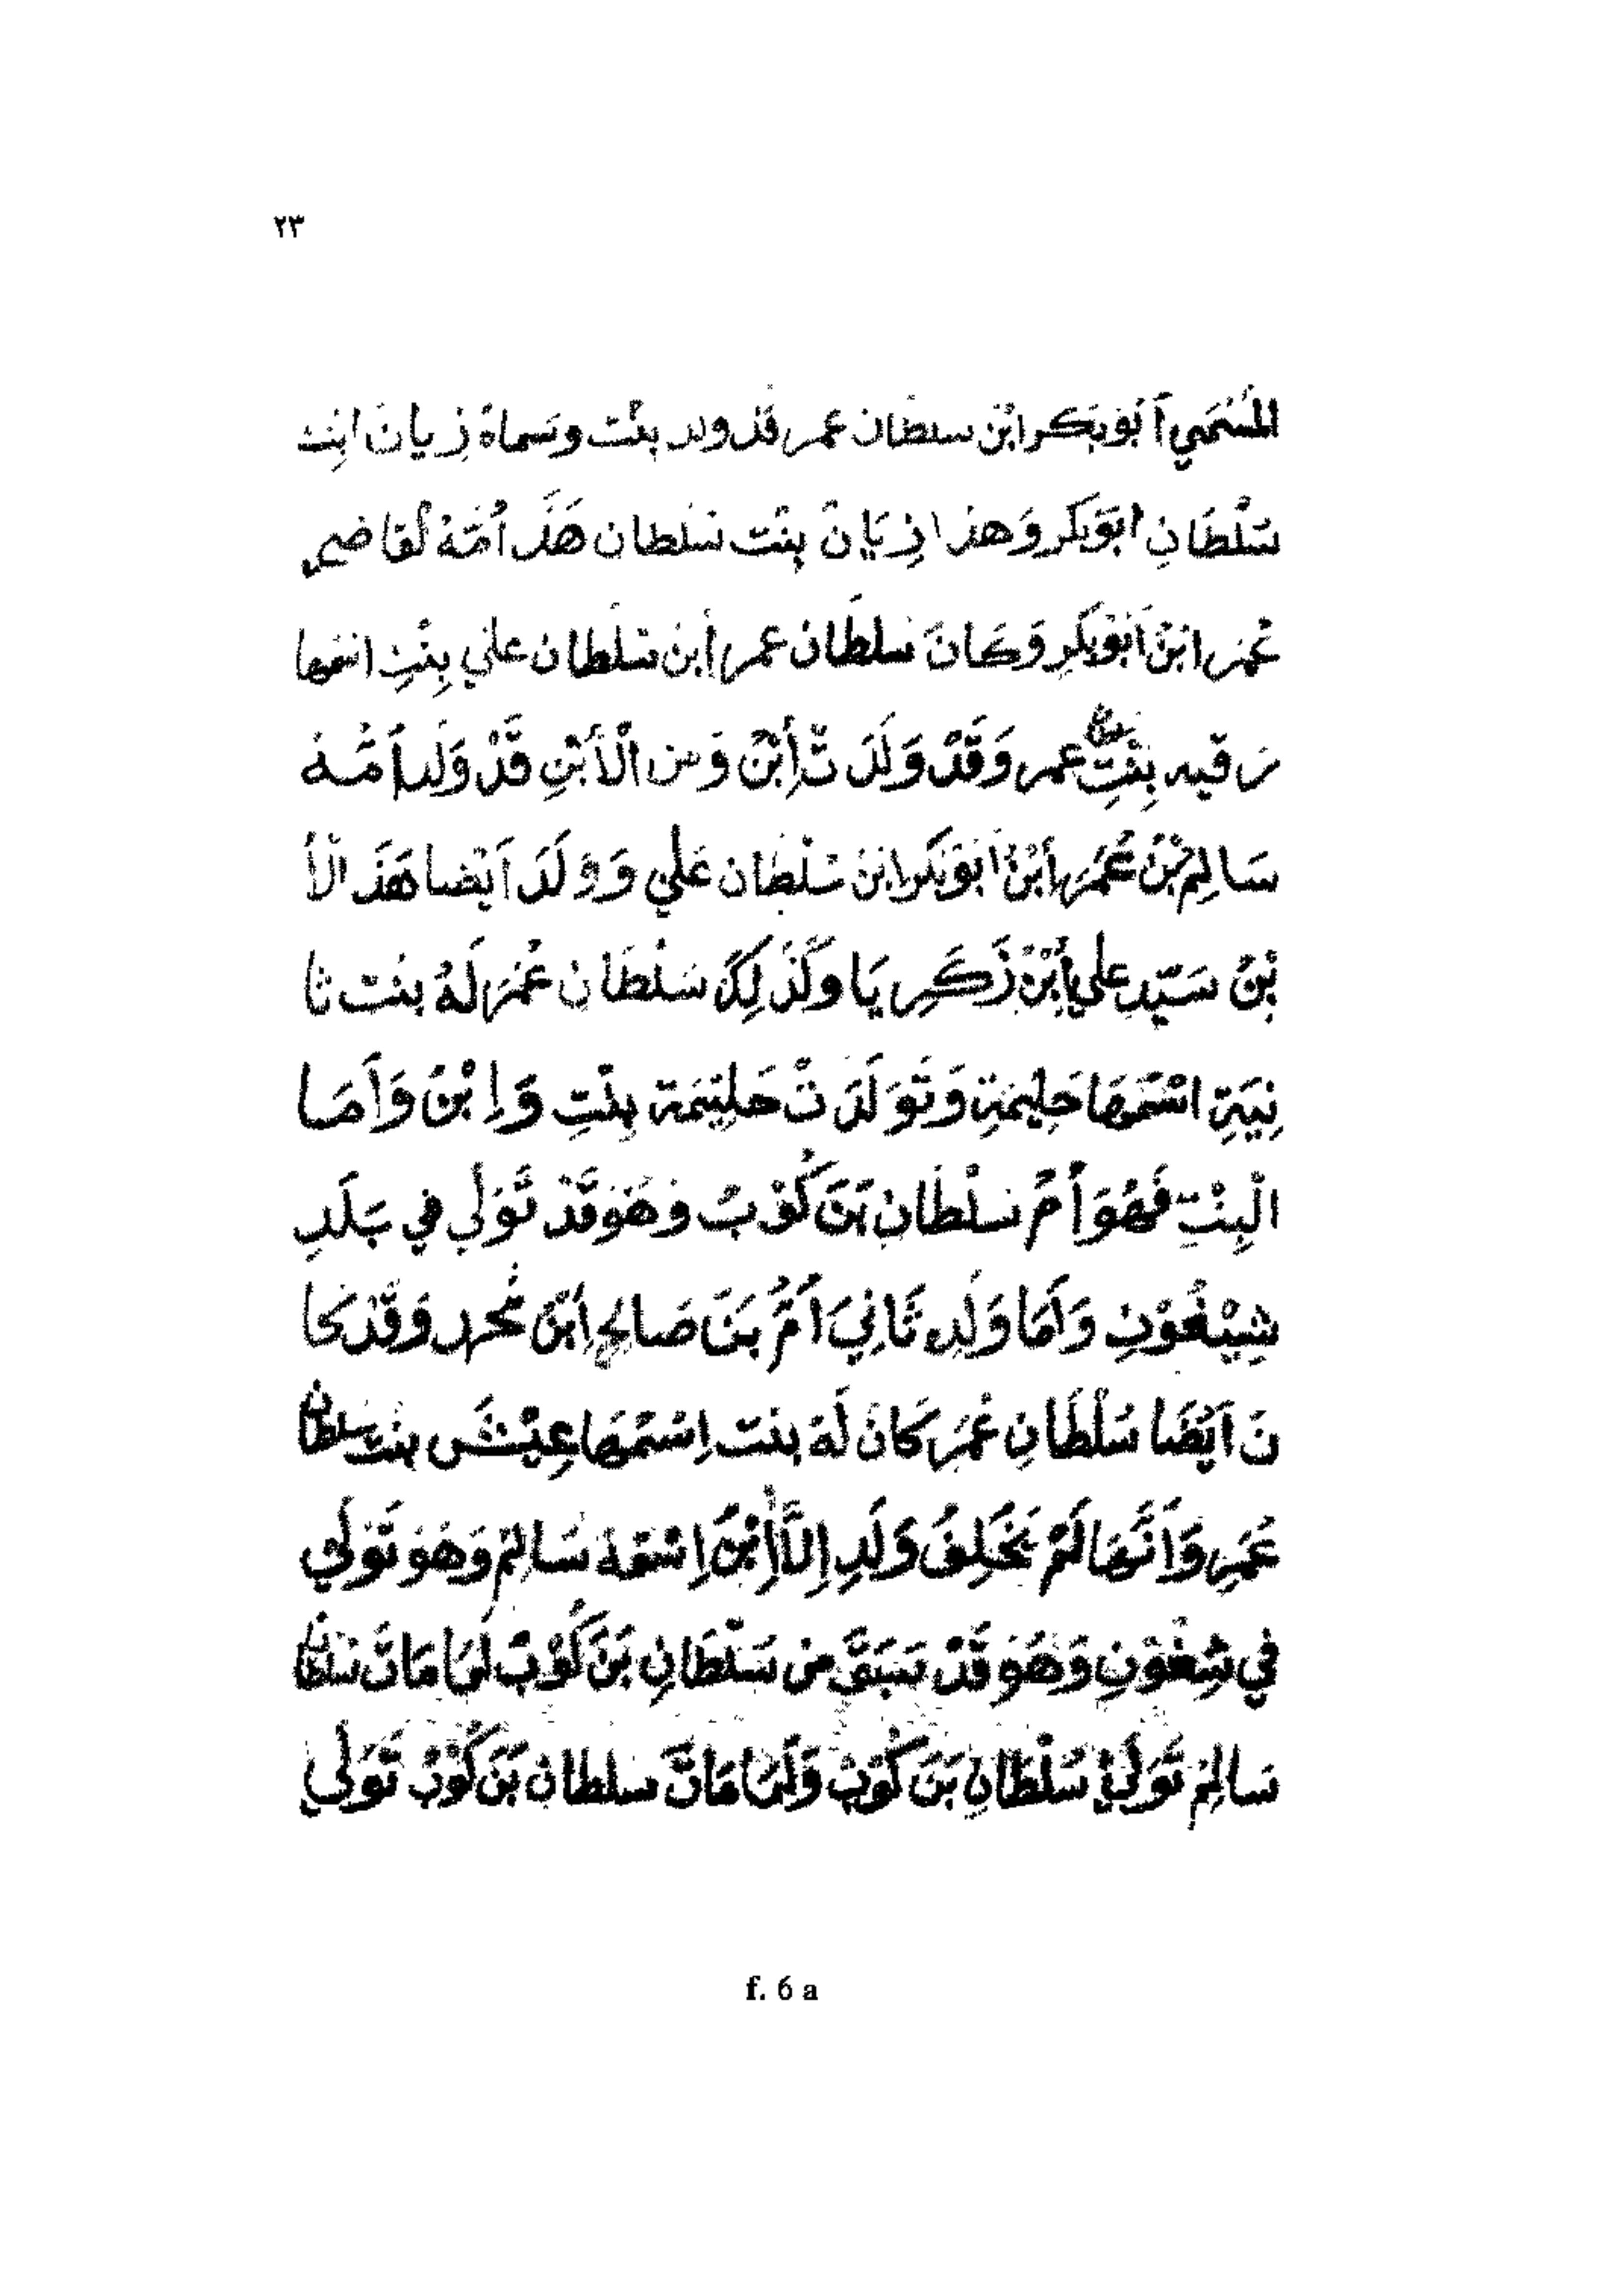 ٢٣
المُسَّمي أَبُو بَكر ابْن سلطان عمر قد ولد بِنْت وسماهُ زِيانَ ابْنت
سُلْطَانِ ابُو بَكر وَهذا زِيَانَ بِنْت سُلطان هَذَ اُمَّهُ لقاضي
عُمَر ابْنُ اَبُو بَكرِ وَكَانَ سُلطَان عمر أبن سُلطان علي بِنْتِ اسْمها
رقيه بِنْتِ سلطان عمر وَقَدْ وَلَدَ تْ أِبْنُ وَمن الْأَبْنِ قَدْ وَلد أُمّهُ
سَالِمْ بْنُ عُمَر أبْنُ اَبُو بَكر ابْن سُلْطَان عَلي وَ وُلَدَ اَيْضا هَذَ الْأَ
بْنُ سَيّدِ علي أبْنُ زَكَرِ يَا وكَذَ لِكَ سُلْطَان عُمَر لَهُ بنت ثا
نِيَةِ اسْمَهَا حَلِيمَةِ وَتَوَ لَدَ تْ حَلِيْمَة بِنْتِ وَ اِ بْنُ وَاَمَا
الْبِنْتِ فَهُوَ أُ مُ سُلْطَان بَنَ كُوْبُ وَهُوَ قَدْ تَوَلي في بَلَدِ
شِيْنْغُوْنِ وَاَمَا وَلَدِ ثَانِيَ اَمُّ بَنَ صَالِحِ أِبْن مُحمد وَقَدْ كَا
نَ اَيْضَا سُلْطَانِ عُمَر كَانَ لَهُ بنت اِسْمَهَا عِيْشَ بنت سلطان
عُمَرِ وَاَنَّهَا لَمْ يَخَلِفُ وَلَدِ اِلاَّ اِبْنُ اِسْمَهُ سَالِمْ وَهُوَ تَوَلي
في شِنْغُوْنِ وَهُوَ قَدْ سَبَقَ من سُلْطَانِ بَنَ كُوْبُ لَمَا مَاتَ سُلطان
سَالِمْ تَوَلي سُلْطَانِ بَنَ كُوْبُ وَلَمَا مَاتَ سلطان بَنَ كُوْبُ تَوَلي
f. 6 a